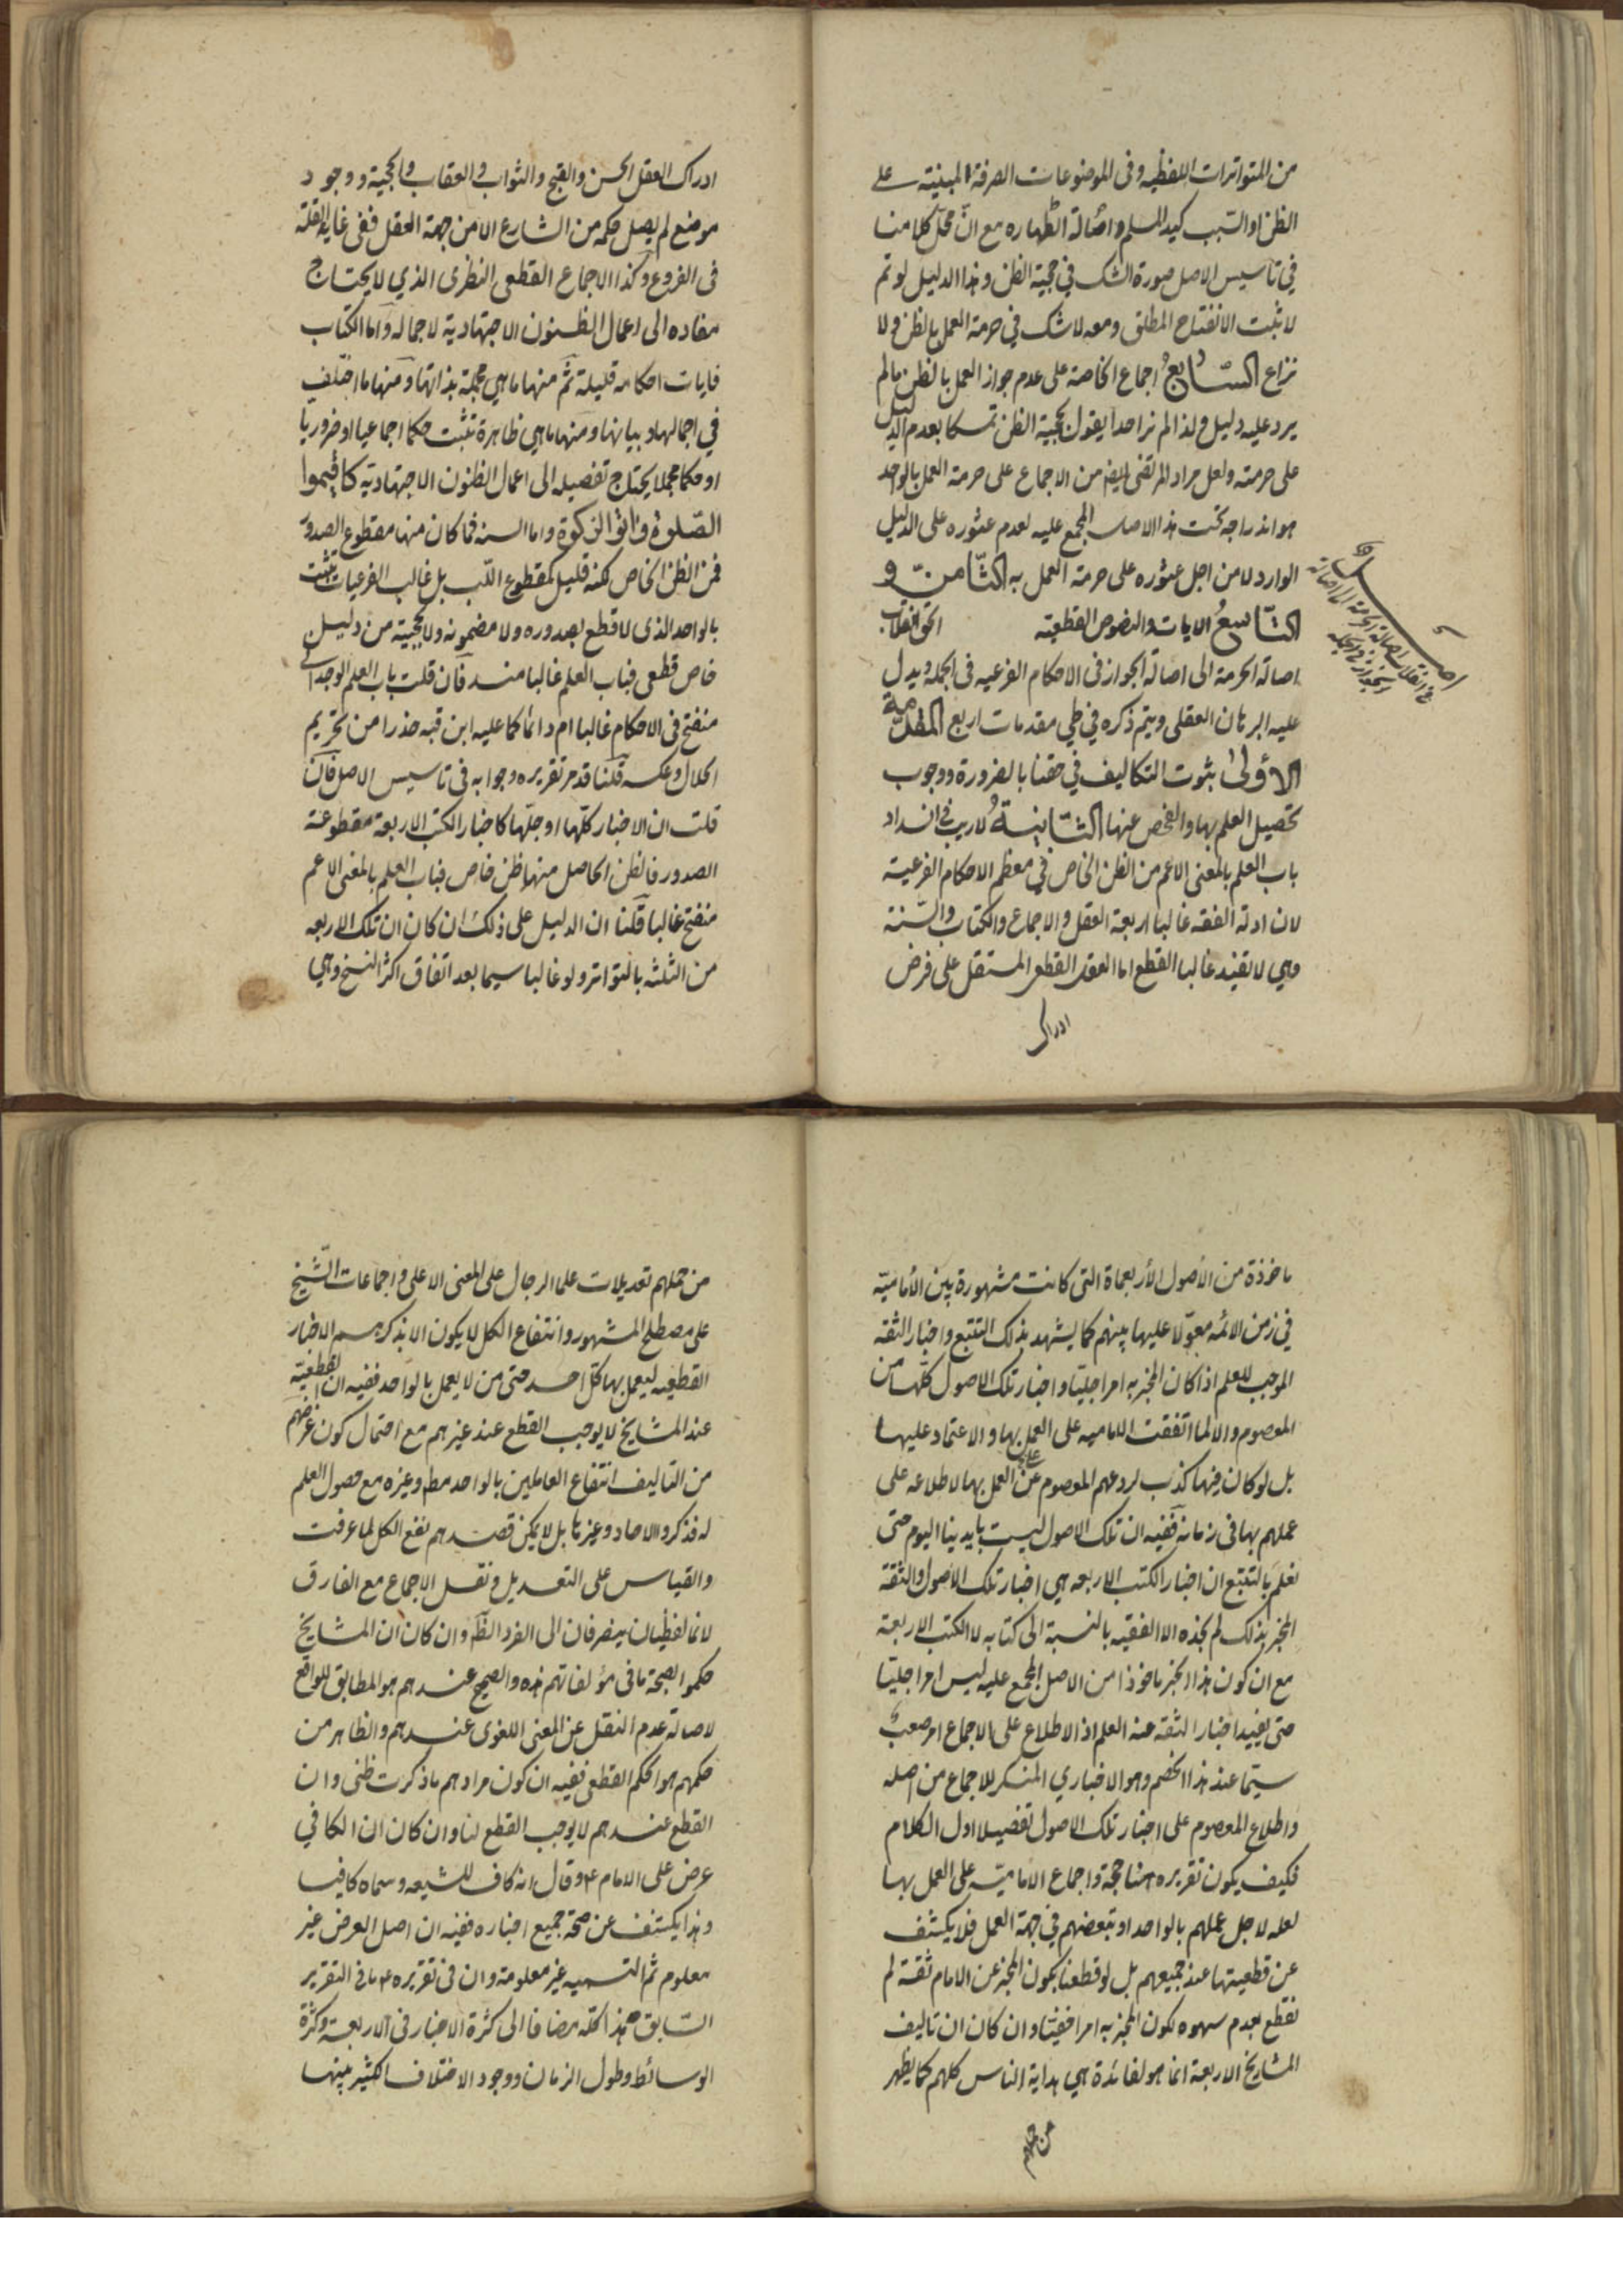 من المتواترات اللفظيه وفى الموضوعات الصرفة المبنيّة على
الظن او السبب كيد المسلم واصالة الطهاره مع انّ محلّ كلامنا
في تاسيس الاصل صورة الشك في حجية الظن وهذا الدليل لو تم
لاثبت الانفتاح المطلق ومعه لا شك في حرمة العمل بالظن ولا
نزاع السّابعُ اجماع الخاصة على عدم جواز العمل بالظن ما لم
يرد عليه دليل ولذا لم نر احدا يقول بحجية الظن تمسكا بعدم الدليل
على حرمته ولعل مراد المرتضى ايضا من الاجماع على حرمة العمل بالواحد
هو اندراجه تحت هذا الاصل المجمع عليه لعدم عثوره على الدليل
الوارد لا من اجل عثوره على حرمة العمل به الثّامن و
التّاسعُ الايات والنصوص القطعيّه الحق انقلاب
اصالة الحرمة الى اصالة الجواز فى الاحكام الفرعيه فى الجملة ويدل
عليه البرهان العقلى ويتم ذكره في طي مقدمات اربع المقدّمة
الاولىٰ بثوت التكاليف في حقنا بالضرورة ووجوب
تحصيل العلم بها والفحص عنها الثّانيةُ لا ريب في انسداد
باب العلم بالمعنى الاعم من الظن الخاص في معظم الاحكام الفرعية
لان ادلة الفقه غالبا اربعة العقل والاجماع والكتاب والسّنة
وهي لا تفيد غالبا القطع اما العقل القطعى المستقل على فرض
ادراك
اصل
في انقلاب اصالة الحرمة الى اصالة
الجواز في الجمله
ادراك العقل الحسن والقبح والثواب والعقاب والحجية ووجود
موضع لم يصل حكمه من الشارع الا من جهة العقل ففى غاية القلة
فى الفروع وكذا الاجماع القطعى النظرى الذي لا يحتاج
مفاده الى اعمال الظنون الاجتهادية لاجماله واما الكتاب
فايات احكامه قليلة ثم منها ما هي مجملة بذاتها ومنها ما اختلف
في اجمالها وبيانها ومنها ما هي ظاهرة تثبت حكما اجماعيا او ضروريا
او حكما مجملا يحتاج تفصيله الى اعمال الظنون الاجتهادية كاقيموا
الصّلوة واتوا الزكوة واما السنه فما كان منها مقطوع الصدور
فمن الظن الخاص لكنه قليل كمقطوع اللّب بل غالب الفرعيات تثبت
بالواحد الذى لا قطع بصدوره ولا مضمونه ولا بحجيته من دليل
خاص قطعى فباب العلم غالبا منسد فان قلت باب العلم الوجدانى
منفتح فى الاحكام غالبا ام دائما كما عليه ابن قبه حذرا من تحريم
الحلال وعكسه قلنا قد مر تقريره وجوابه فى تاسيس الاصل فان
قلت ان الاخبار كلّها او جلّها كاخبار الكتب الاربعة مقطوعة
الصدور فالظن الحاصل منها ظن خاص فباب العلم بالمعنى الاعم
منفتح غالبا قلنا ان الدليل على ذلك ان كان ان تلك الاربعه
من الثلثه بالتواتر ولو غالبا سيما بعد اتفاق اكثر النسخ وهي
ماخوذة من الاصول الأربعماة التى كانت مشهورة بين الأماميّه
في زمن الائمه معوّلا عليها بينهم كما يشهد بذلك التتبع واخبار الثقه
الموجب للعلم اذا كان المخبر به امرا جليّا واخبار تلك الاصول كلّها من
المعصوم والا لما اتفقت الاماميه على العمل بها والاعتماد عليها
بل لو كان فيها كذب لردعهم المعصوم عن العمل بها لاطلاعه على
عملهم بها فى زمانه ففيه ان تلك الاصول ليست بايدينا اليوم حتى
نعلم بالتتبع ان اخبار الكتب الاربعه هي اخبار تلك الاصول والثقة
المخبر بذلك لم نجده الا الفقيه بالنسبة الى كتابه لا الكتب الاربعة
مع ان كون هذا الخبر ماخوذا من الاصل المجمع عليه ليس امرا جليّا
حتى يفيد اخبار الثقة عنه العلم اذ الاطلاع على الاجماع امر صعب
سيّما عند هذا الخصم وهو الاخباري المنكر للاجماع من اصله
واطلاع المعصوم على اخبار تلك الاصول تفصيلا اول الكلام
فكيف يكون تقريره هنا حجة واجماع الاماميّة على العمل بها
لعله لاجل عملهم بالواحد او تبعضهم في جهة العمل فلا يكشف
عن قطعيتها عند جميعهم بل لو قطعنا بكون المخبر عن الامام ثقة لم
نقطع بعدم سهوه لكون المخبر به امرا خفيّا وان كان ان تاليف
المشايخ الاربعة انما هو لفائدة هي هداية الناس كلهم كما يظهر
من حملهم
من حملهم تعديلات علما الرجال على المعنى الاعلى واجماعات الشّيخ
على مصطلح المشهور وانتفاع الكل لا يكون الا بذكرهم الاخبار
القطعيه ليعمل بها كل احد حتى من لا يعمل بالواحد ففيه ان القطعيّة
عند المشايخ لا يوجب القطع عند غيرهم مع احتمال كون غرضهم
من التاليف انتفاع العاملين بالواحد مطم وغيره مع حصول العلم
له فذكروا الاحاد وغيرها بل لا يمكن قصدهم نفع الكل لما عرفت
والقياس على التعديل ونقل الاجماع مع الفارق
لانهما لفظيان ينصرفان الى الفرد الظم وان كان ان المشايخ
حكموا بصحة ما فى مؤلفاتهم هذه والصحيح عندهم هو المطابق للواقع
لاصالة عدم النقل عن المعنى اللغوى عندهم والظاهر من
حكمهم هو الحكم القطعى ففيه ان كون مرادهم ما ذكرت ظنى وان
القطع عندهم لا يوجب القطع لنا وان كان ان الكافي
عرض على الامام ع وقال انه كاف للشيعه وسماه كافيا
وهذا يكشف عن صحة جميع اخباره ففيه ان اصل العرض غير
معلوم ثم التسميه غير معلومة وان فى تقريره ع ما فى التقرير
السّابق هذا كلّه مضافا الى كثرة الاخبار فى الاربعة وكثرة
الوسائط وطول الزمان ووجود الاختلاف الكثير بينها